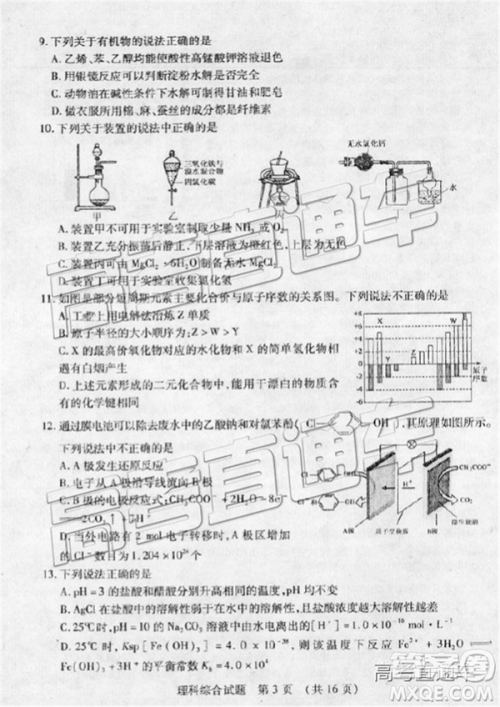 9. 下列关于有机物的说法正确的是
A. 乙烯、苯、乙醇均能使酸性高锰酸钾溶液退色
B. 用银镜反应可以判断淀粉水解是否完全
C. 动物油在碱性的条件下水解可制得甘油和肥皂
D. 做衣服所用的棉、麻、蚕丝的成分均是纤维素
10. 下列关于装置的说法中正确的是
三氧化铁与
溴水反应后
四氯化碳
无水氯化钙
水
甲
乙
丙
丁
A. 装置甲不可用于实验室制取少量 NH₃ 或 O₂
B. 装置乙充分振荡后静止，下层溶液为橙红色，上层为无色
C. 装置丙可由 MgCl₂·6H₂O 制备无水 MgCl₂
D. 装置丁可用于实验室收集氨气
11. 如图是部分短周期元素主要化合价与原子序数的关系图。下列说法不正确的是
A. 工业上用电解法冶炼 Z 单质
B. 原子半径的大小顺序为：Z＞W＞Y
C. X 的最高价氧化物对应的水化物和 X 的简单氢化物相
遇有白烟产生
D. 上述元素形成的二元化合物中，能用于漂白的物质含有
的化学键相同
X
Y
Z
W
原子
序数
12. 通过膜电池可以除去废水中的乙酸钠和对氯苯酚(Cl—OH)，其原理如图所示。
下列说法中不正确的是
A. A 极发生还原反应
B. 电子从 A 极沿导线流向 B 极
C. B 极的电极反应式：CH₃COO⁻＋2H₂O－8e⁻
═2CO₂↑＋7H⁺
D. 当外电路有 2 mol e⁻ 转移时，A 极区增加
的 Cl⁻ 数目为 1.204×10²⁴
Cl
OH
H⁺
CH₃COO⁻
A极
B极
13. 下列说法正确的是
A. pH＝3 的盐酸和醋酸分别升高相同的温度，pH 均不变
B. AgCl 在盐酸中的溶解性弱于在水中的溶解性，说明盐酸的酸性和溶解性越差
C. 25℃时，pH＝10 的 Na₂CO₃ 溶液中由水电离出的[H⁺]＝1.0×10⁻¹⁰ mol·L⁻¹
D. 25℃时，Ksp[Fe(OH)₃]＝4.0×10⁻³⁸，则该温度下反应 Fe³⁺＋3H₂O
Fe(OH)₃＋3H⁺ 的平衡常数 Kₐ＝4.0×10⁴
理科综合试题　第 3 页　(共 16 页)
高考直通车
高考直通车
高考直通车